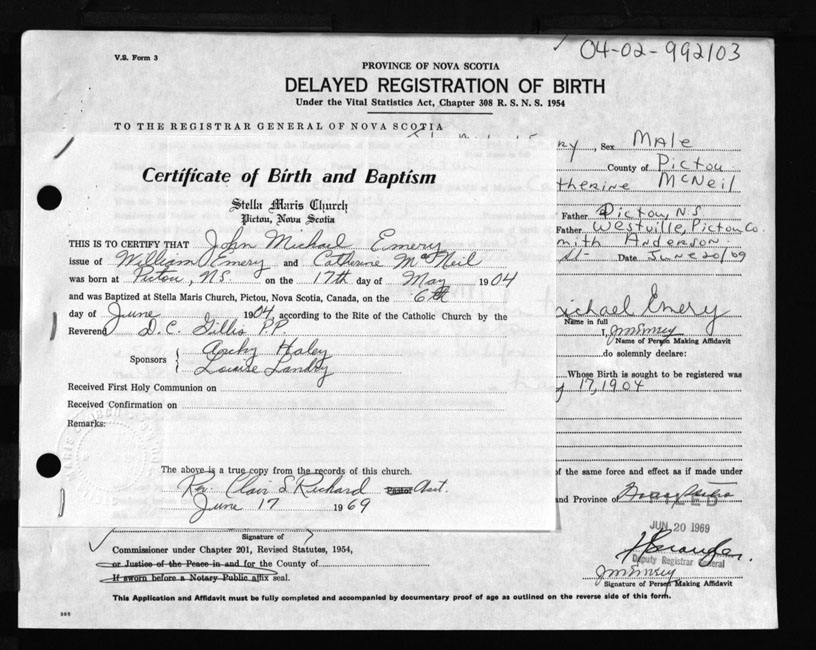 04-02-992103
V.S. Form 3
PROVINCE OF NOVA SCOTIA
DELAYED REGISTRATION OF BIRTH
Under the Vital Statistics Act, Chapter 308 R. S. N. S. 1954
TO THE REGISTRAR GENERAL OF NOVA SCOTIA
, Sex Male
County of Pictou
therine McNeil
Father Pictou, N.S.
Father Westville, Pictou Co.
mith Anderson
St- Date June 20/69
Certificate of Birth and Baptism
Stella Maris Church
Pictou, Nova Scotia
THIS IS TO CERTIFY THAT John Michael Emery
issue of William Emery and Catherine McNeil
was born at Pictou, NS on the 17th day of May 1904
and was Baptized at Stella Maris Church, Pictou, Nova Scotia, Canada, on the 6th
day of June 1904, according to the Rite of the Catholic Church by the
Reverend D. C. Gillis P.P.
Sponsors Archy Haley
Louise Landry
Received First Holy Communion on
Received Confirmation on
Remarks:
The above is a true copy from the records of this church.
Rev. Clair S. Richard Pastor Asst.
June 17 1969
ichael Emery
Name in full
I, JM Emery
Name of Person Making Affidavit
do solemnly declare:
Whose Birth is sought to be registered was
y 17, 1904
of the same force and effect as if made under
and Province of Nova Scotia
FILED
JUN 20 1969
Deputy Registrar General
JM Emery
Signature of Person Making Affidavit
Signature of
Commissioner under Chapter 201, Revised Statutes, 1954,
or Justice of the Peace in and for the County of
If sworn before a Notary Public affix seal.
This Application and Affidavit must be fully completed and accompanied by documentary proof of age as outlined on the reverse side of this form.